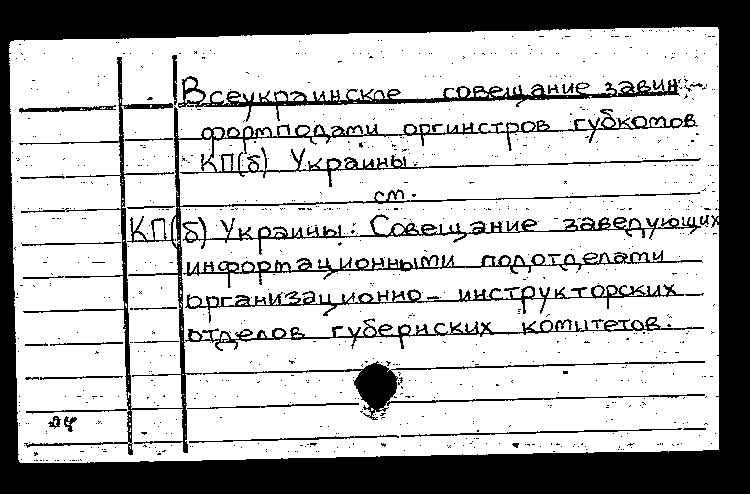 Всеукраинское совещание завин-
формподами оргинстров губкомов
КП(б) Украины.
см.
КП(б) Украины. Совещание заведующих
информационными подотделами
организационно-инструкторских
отделов губернских комитетов.